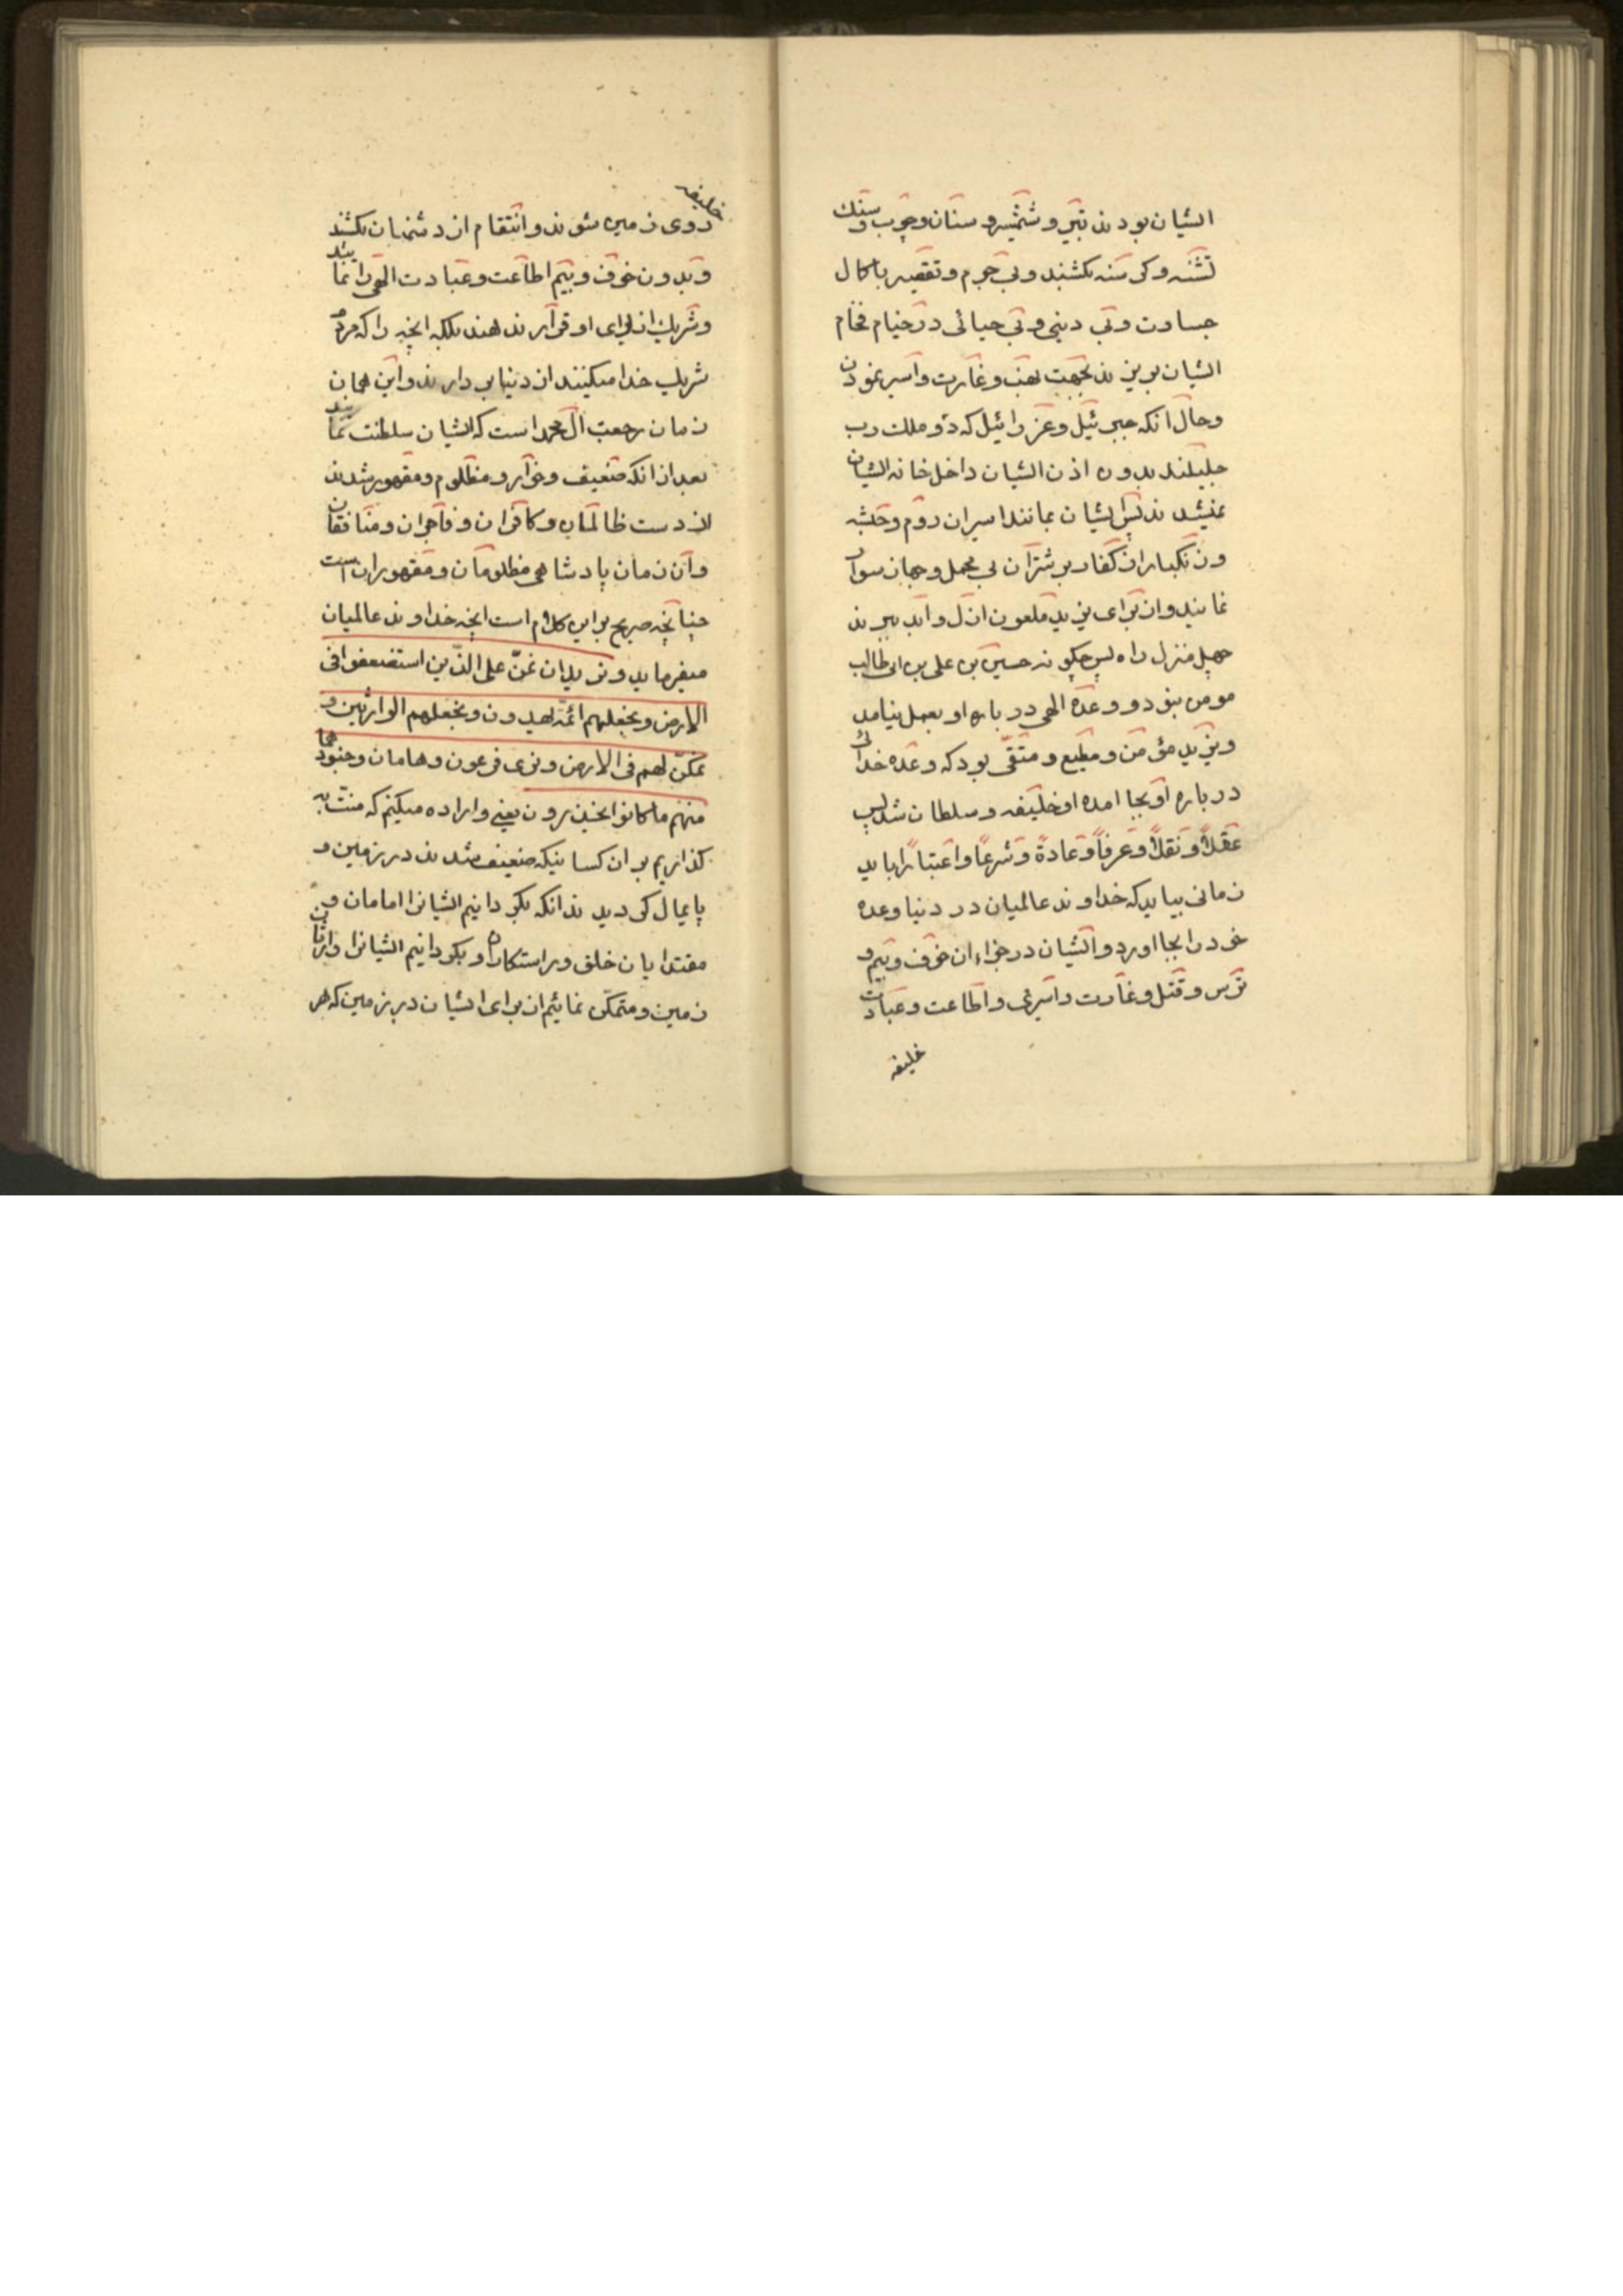 ایشان بودند بتیر و شمشیر و سنان و چوب و سنك
تشنه و کرسنه بکشند و بی جرم و تقصیر با کمال
جسارت و بی دینی و بی حیائی در خیام فخام
ایشان بریزند بجهت نهب و غارت و اسیر نمودن
و حال آنکه جبرئیل و عزرائیل که دو ملك رب
جلیلند بدون اذن ایشان داخل خانه ایشان
نمیشدند پس ایشان بمانند اسیران روم و حبشه
و زنکبار از کفار بر شتران بی محمل و جهاز سوار
نمایند و از برای یزید ملعون ازل و ابد ببرند
چهل منزل راه پس چکونه حسین بن علی بن ابی طالب
مومن نبود و وعده الهی در باره او بعمل نیامد
و یزید مؤمن و مطیع و متقی بود که وعده خدائی
در باره او بجا امده او خلیفه و سلطان شد پس
عقلاً و نقلاً و عرفاً و عادةً و شرعاً و اعتباراً باید
زمانی بیاید که خداوند عالمیان در دنیا وعده
خود را بجا اورد و ایشان در جزاء ان خوف و بیم و
ترس و قتل و غارت و اسیری و اطاعت و عبادت
خلیفه
خلیفه
روی زمین شوند و انتقام از دشمنان بکشند
و بدون خوف و بیم اطاعت و عبادت الهی را نمایند
و شریك از برای او قرار ندهند بلکه انچه را که مردم
شریك خدا میکنند از دنیا بر دارند و این همان
زمان رجعت ال محمد است که ایشان سلطنت نمایند
بعد از انکه ضعیف و خوار و مظلوم و مقهور شدند
از دست ظالمان و کافران و فاجران و منافقان
و آن زمان پادشاهی مظلومان و مقهوران است
چنانچه صریح بر این کلام است انچه خداوند عالمیان
میفرماید و نرید ان نمنّ علی الذین استضعفوا فی
الارض و نجعلهم ائمة یهدون و نجعلهم الوارثین و
نمکّن لهم فی الارض و نری فرعون و هامان و جنودهما
منهم ما کانوا یحذرون یعنی و اراده میکنم که منّت به
کذاریم بر ان کسانیکه ضعیف شدند در زمین و
پایمال کردیدند انکه بکردانیم ایشانرا امامان و
مقتدایان خلق و براستکاران و بکردانیم ایشانرا وارثان
زمین و متمکّن نمائیم از برای ایشان در زمین که هر